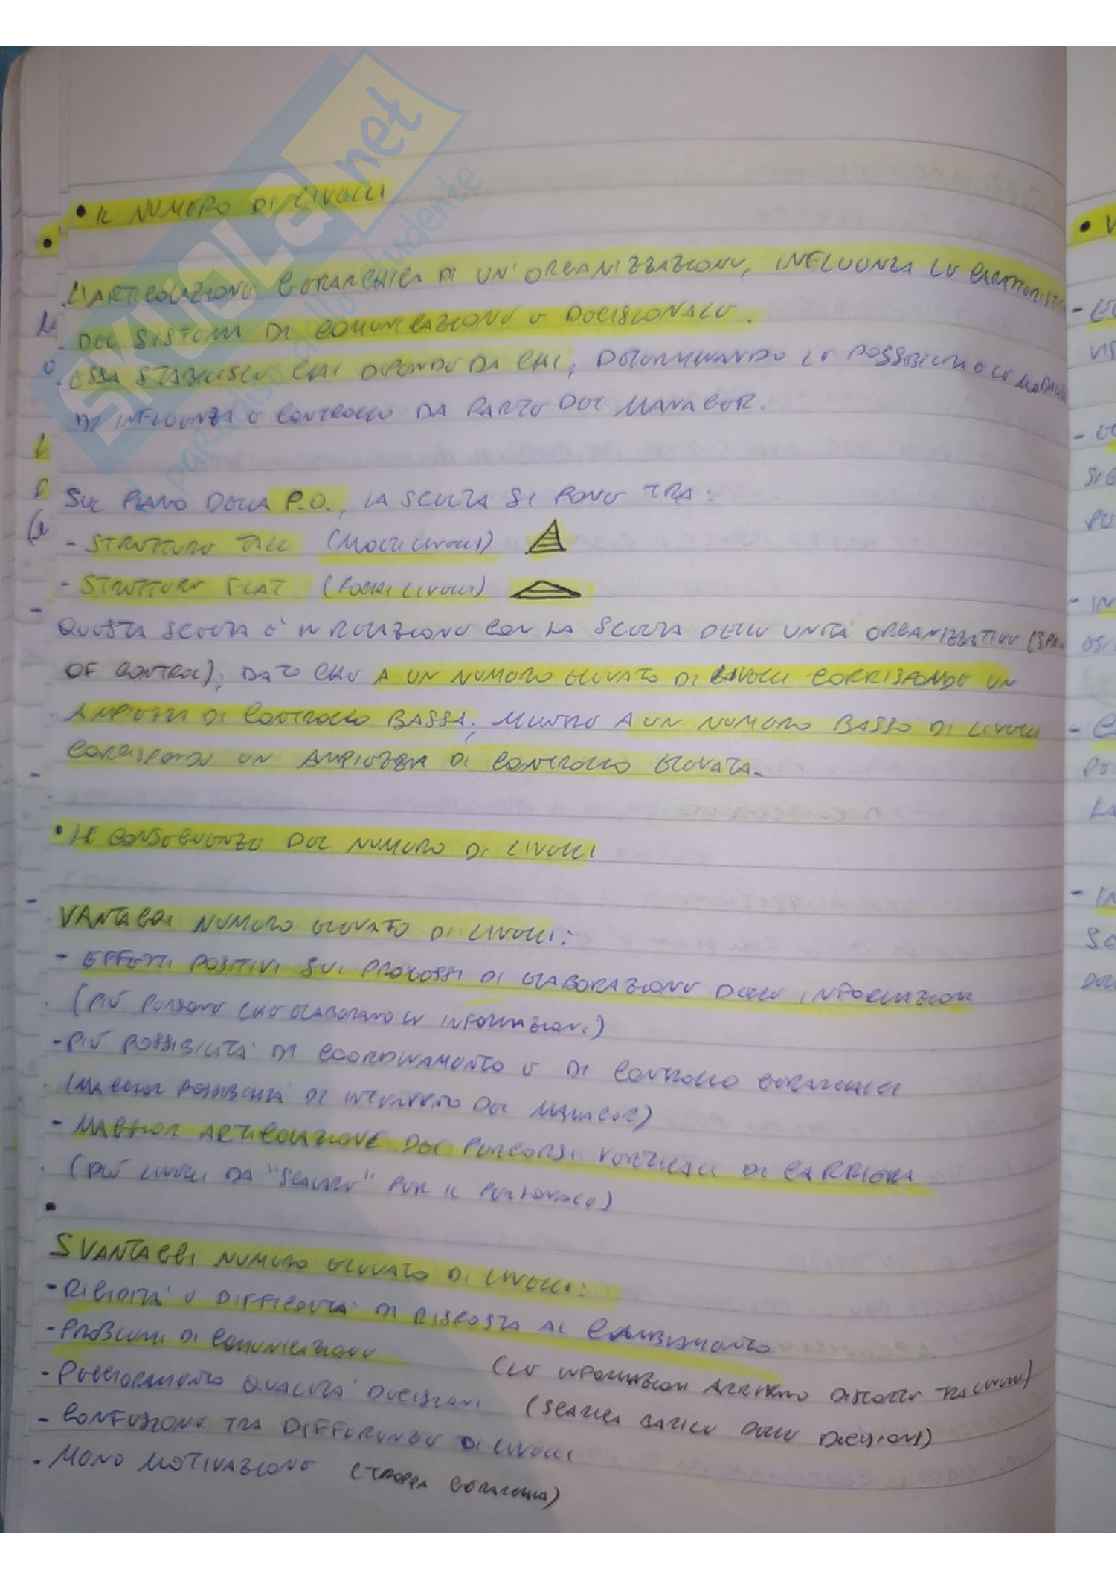 • IL NUMERO DI LIVELLI
L'ARTICOLAZIONE GERARCHICA DI UN'ORGANIZZAZIONE, INFLUENZA LE
DEL SISTEMA DI COMUNICAZIONE E DECISIONALE.
ESSA STABILISCE CHI DIPENDE DA CHI, DETERMINANDO LE POSSIBILITÀ E LE MODALITÀ
DI INFLUENZA E CONTROLLO DA PARTE DEL MANAGER.
SUL PIANO DELLA P.O., LA SCELTA SI PONE TRA:
- STRUTTURE TALL (MOLTI LIVELLI)
- STRUTTURE FLAT (POCHI LIVELLI)
QUESTA SCELTA È IN RELAZIONE CON LA SCELTA DELLE UNITÀ ORGANIZZATIVE (SPAN
OF CONTROL), DATO CHE A UN NUMERO ELEVATO DI LIVELLI CORRISPONDE UN
AMPIEZZA DI CONTROLLO BASSA, MENTRE A UN NUMERO BASSO DI LIVELLI
CORRISPONDE UN AMPIEZZA DI CONTROLLO ELEVATA.
• LE CONSEGUENZE DEL NUMERO DI LIVELLI
VANTAGGI NUMERO ELEVATO DI LIVELLI:
- EFFETTI POSITIVI SUI PROCESSI DI ELABORAZIONE DELLE INFORMAZIONI
(PIÙ PERSONE CHE ELABORANO LE INFORMAZIONI)
- PIÙ POSSIBILITÀ DI COORDINAMENTO E DI CONTROLLO GERARCHICI
(MAGGIOR POSSIBILITÀ DI INTERVENTO DEL MANAGER)
- MAGGIOR ARTICOLAZIONE DEI PERCORSI VERTICALI DI CARRIERA
(PIÙ LIVELLI DA "SCALARE" PER IL PERSONALE)
SVANTAGGI NUMERO ELEVATO DI LIVELLI:
- RIGIDITÀ E DIFFICOLTÀ DI RISPOSTA AL CAMBIAMENTO
- PROBLEMI DI COMUNICAZIONE (LE INFORMAZIONI ARRIVANO DISTORTE TRA LIVELLI)
- PEGGIORAMENTO QUALITÀ DECISIONI (SCARICA BARILE DELLE DECISIONI)
- CONFUSIONE TRA DIFFERENZE DI LIVELLI
- MENO MOTIVAZIONE (TROPPA GERARCHIA)
SKUOLA.net